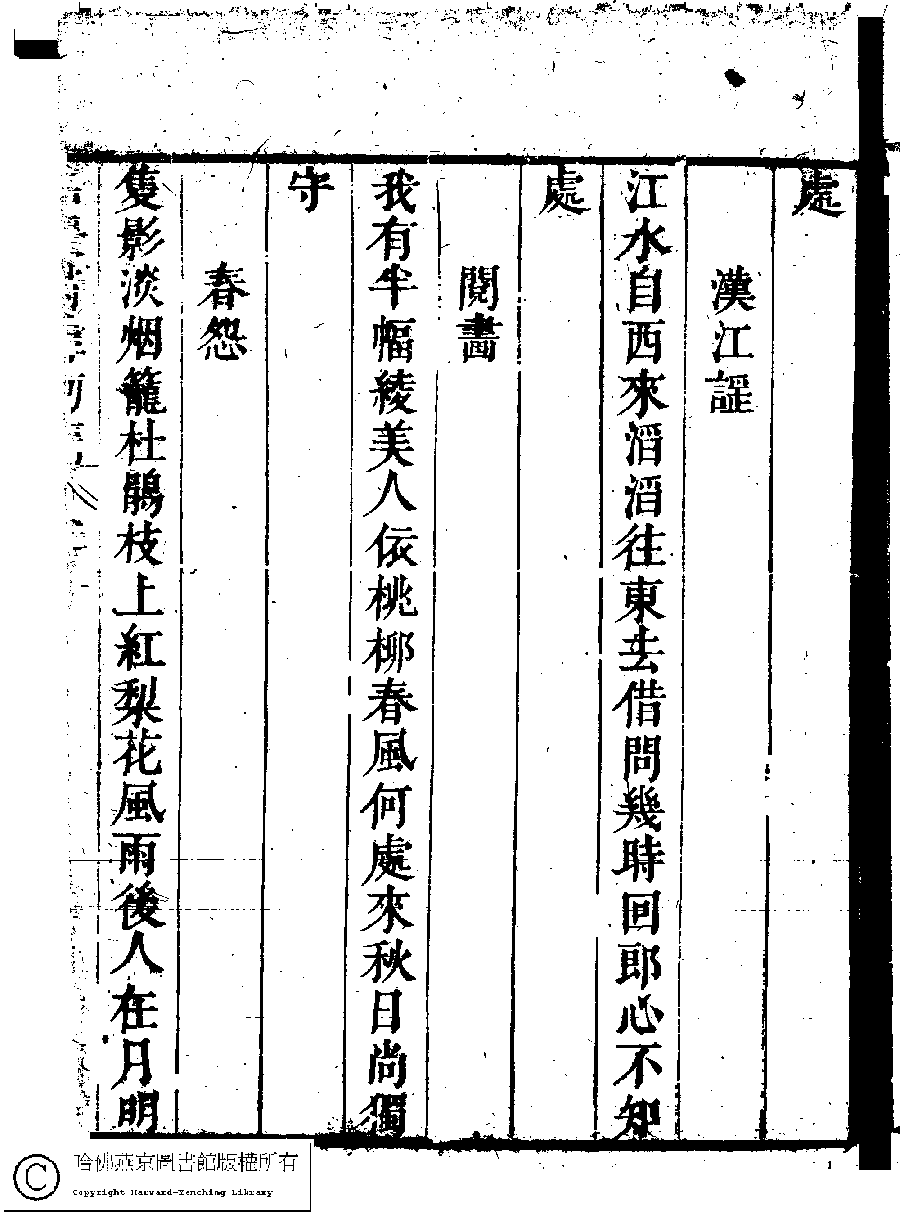 處
漢江謡
江水自西來滔滔往東去借問幾時回郎心不知
處
閱畵
我有半幅綾美人依桃柳春風何處來秋日尚獨
守
春怨
隻影淡烟籠杜鵑枝上紅梨花風雨後人在月明
哈佛燕京圖書館版權所有
Copyright Harvard-Yenching Library